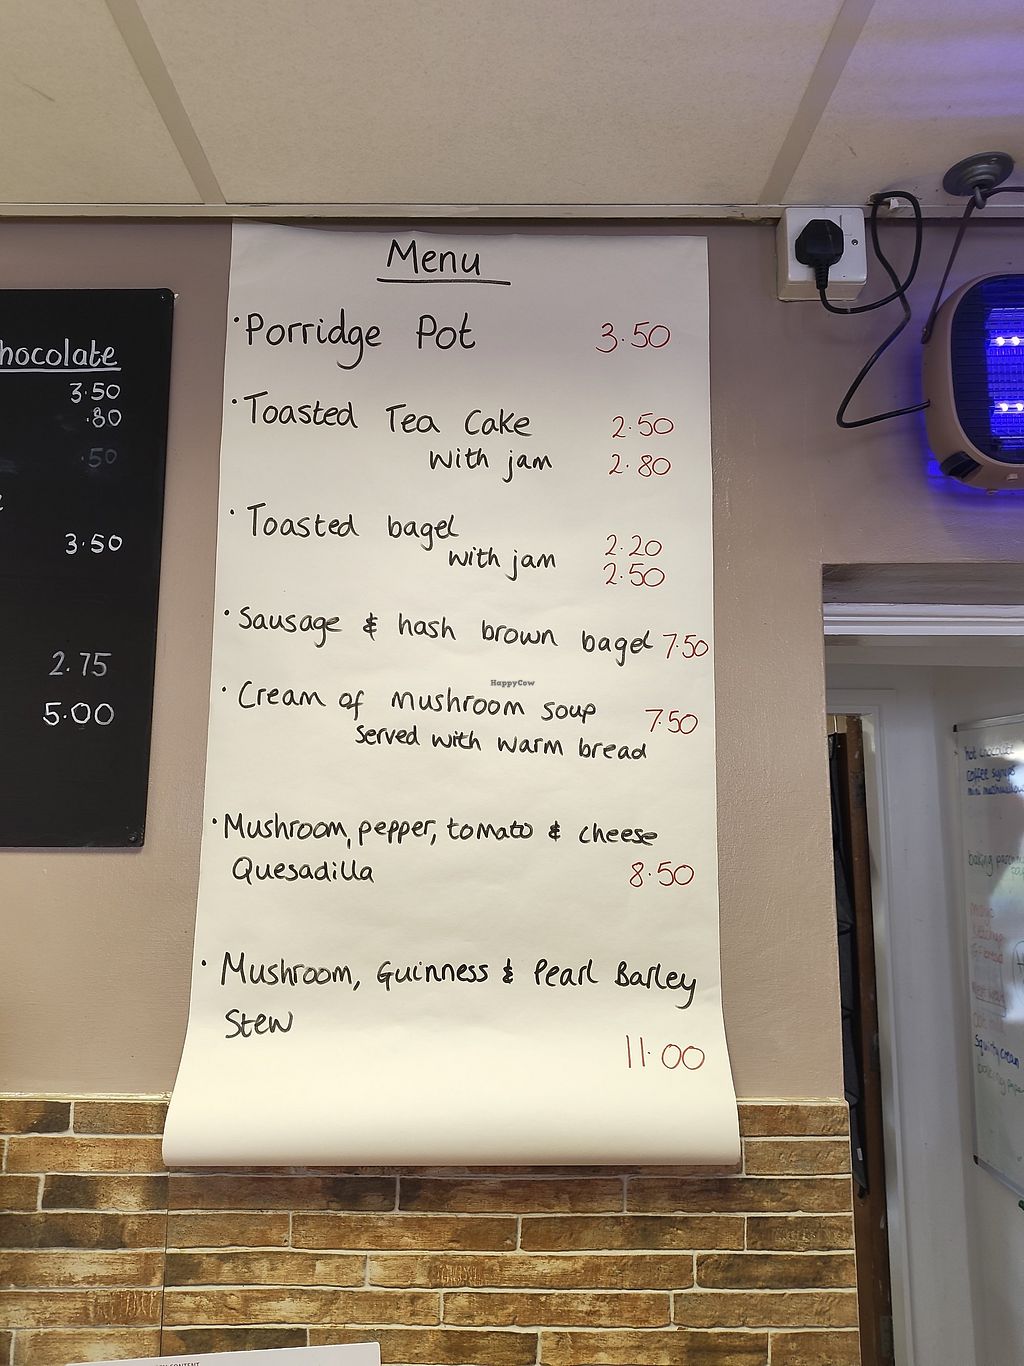 Menu
· Porridge Pot 3.50
· Toasted Tea Cake 2.50
with jam 2.80
· Toasted bagel 2.20
with jam 2.50
· Sausage & hash brown bagel 7.50
· Cream of mushroom soup 7.50
served with warm bread
· Mushroom, pepper, tomato & cheese
Quesadilla 8.50
· Mushroom, Guinness & Pearl Barley
Stew
11.00
HappyCow
hocolate
3.50
.80
.50
3.50
2.75
5.00
hot chocolate
coffee syrups
baking
squirty cream
CONTENT